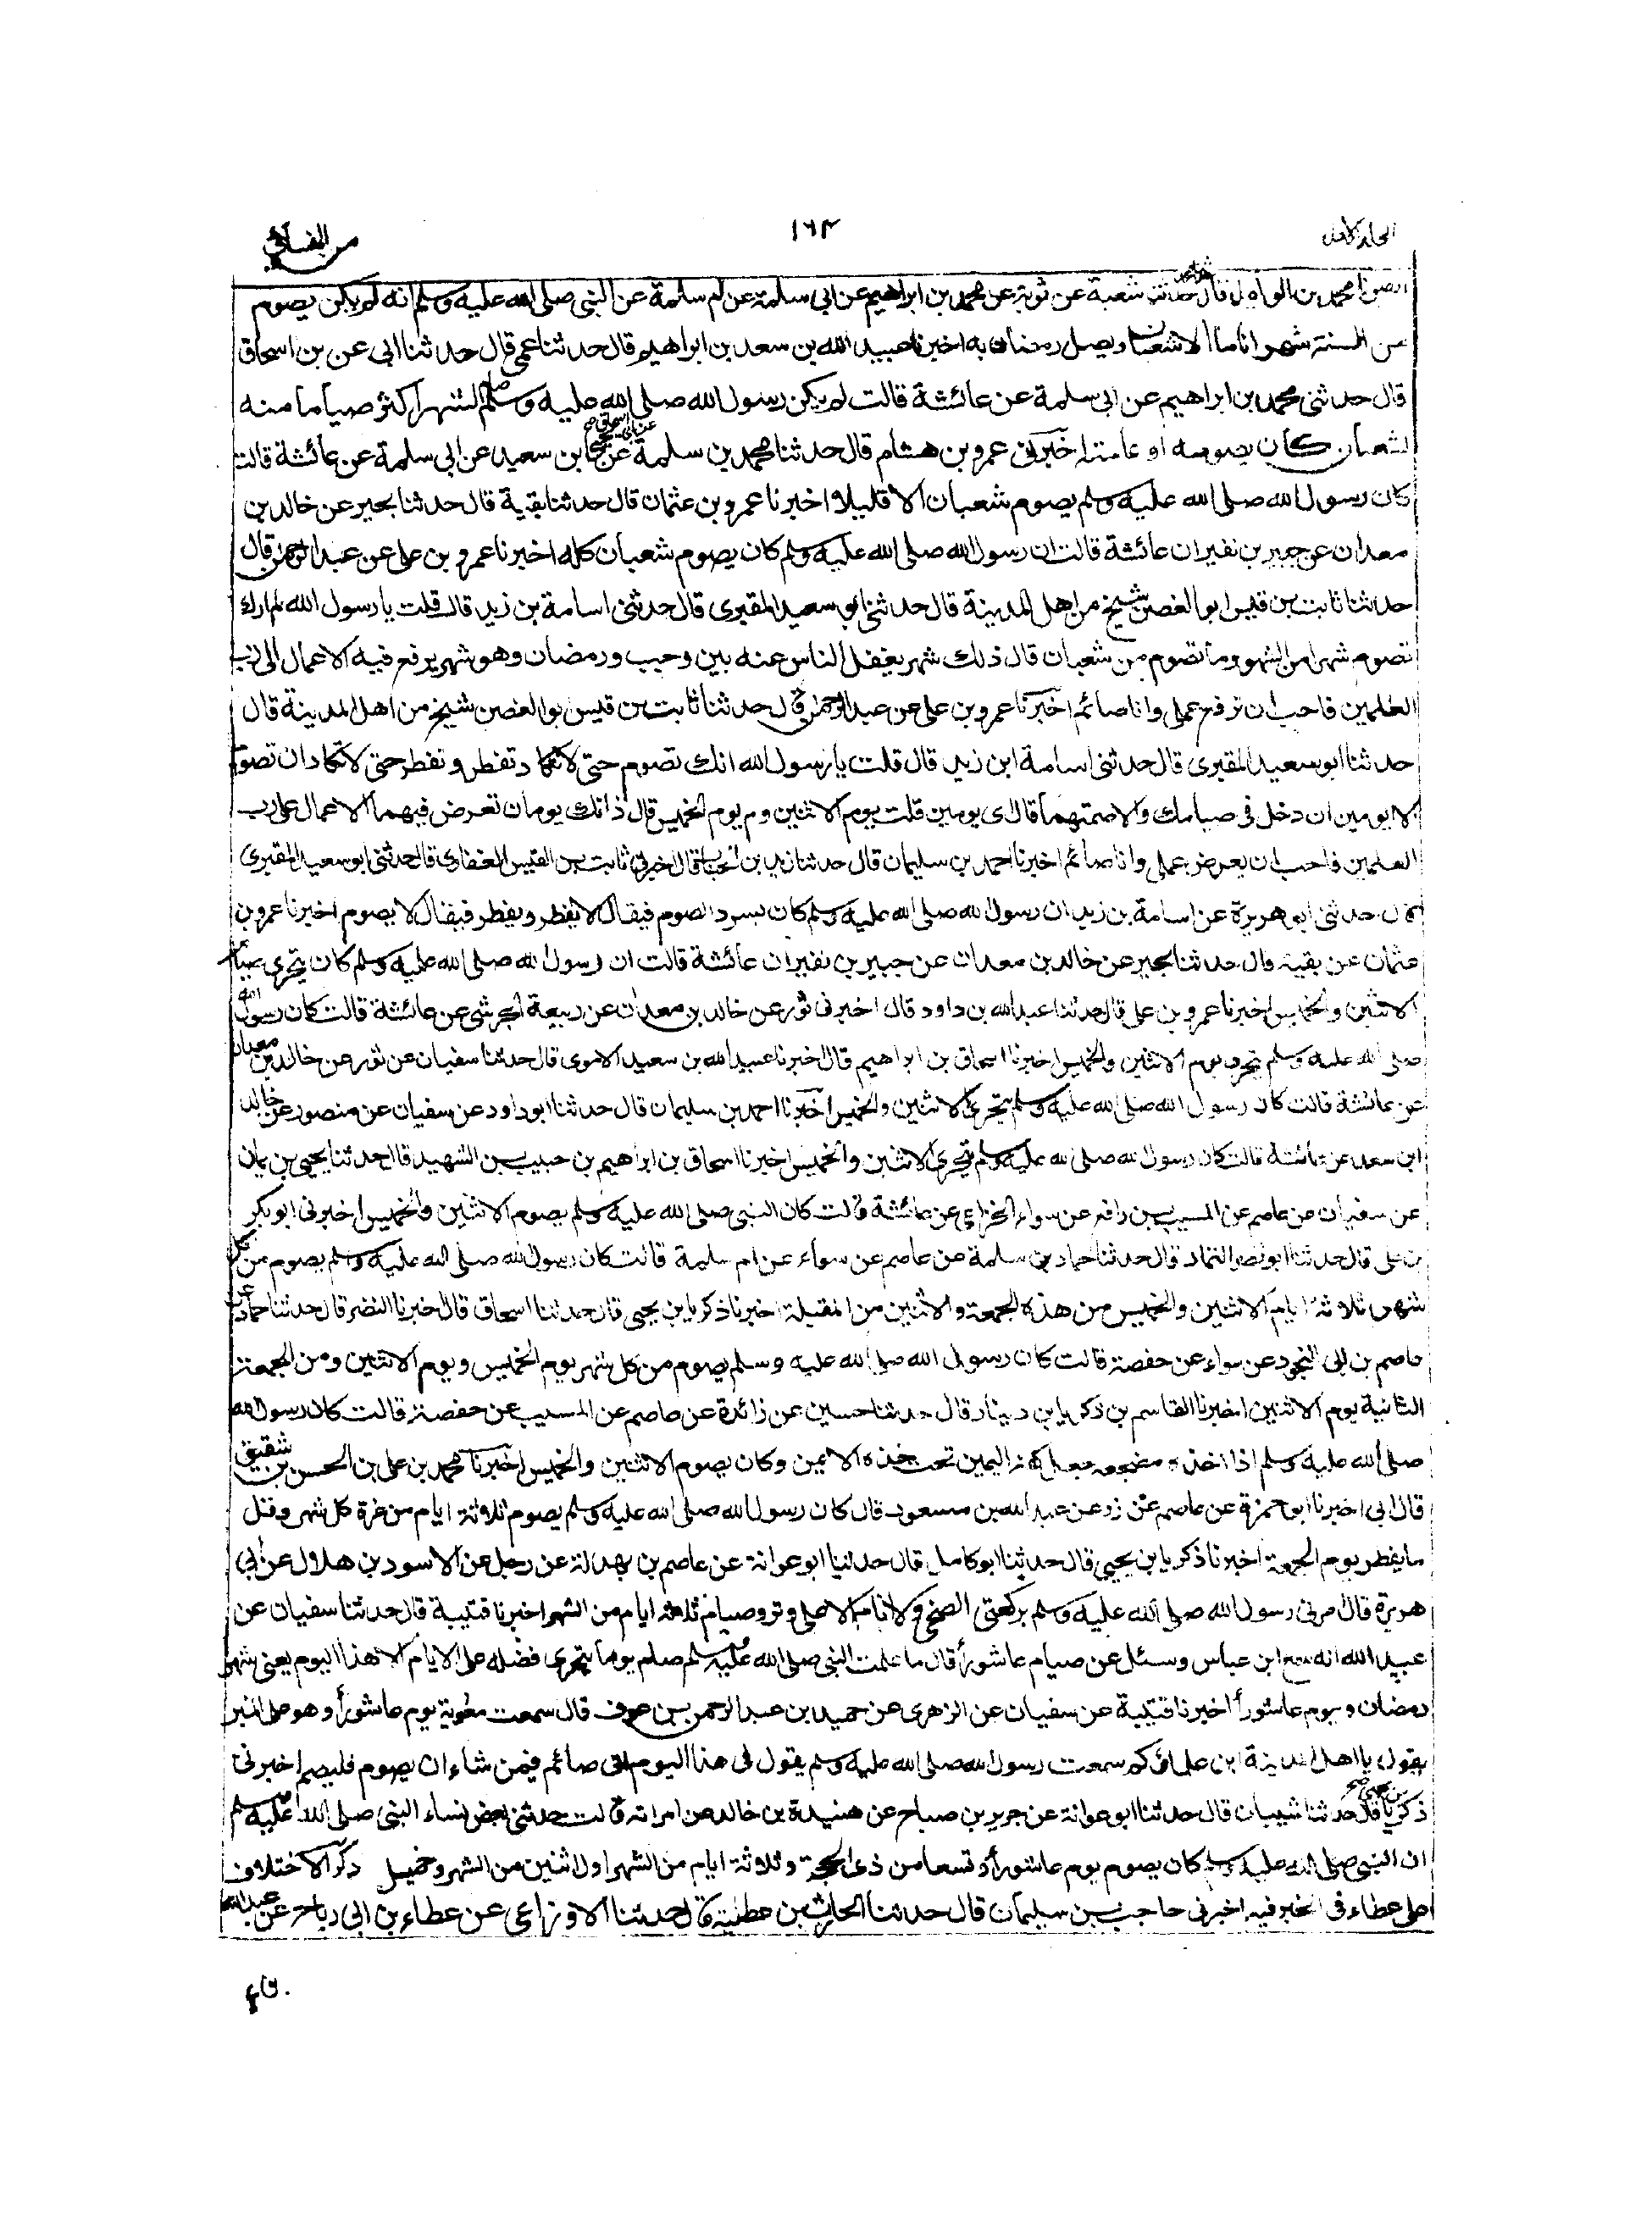 الجلد الاول
١٦٣
من النسائي
محمد بن الوليد قال حدثنا شعبة عن توبة عن محمد بن ابراهيم عن ابي سلمة عن ام سلمة عن النبي صلى الله عليه وسلم انه لم يكن يصوم
من السنة شهرا تاما الا شعبان ويصل رمضان به اخبرنا عبيد الله بن سعد بن ابراهيم قال حدثنا عمي قال حدثنا ابي عن بن اسحاق
قال حدثني محمد بن ابراهيم عن ابي سلمة عن عائشة قالت لم يكن رسول الله صلى الله عليه وسلم لشهر اكثر صياما منه
لشعبان كان يصومه او عامته اخبرني عمرو بن هشام قال حدثنا محمد بن سلمة عن ابن اسحاق عن يحيى بن سعيد عن ابي سلمة عن عائشة قالت
كان رسول الله صلى الله عليه وسلم يصوم شعبان الا قليلا اخبرنا عمرو بن عثمان قال حدثنا بقية قال حدثنا بحير عن خالد بن
معدان عن جبير بن نفير ان عائشة قالت ان رسول الله صلى الله عليه وسلم كان يصوم شعبان كله اخبرنا عمرو بن علي عن عبد الرحمن قال
حدثنا ثابت بن قيس ابو الغصن شيخ من اهل المدينة قال حدثني ابو سعيد المقبري قال حدثني اسامة بن زيد قال قلت يا رسول الله لم ارك
تصوم شهرا من الشهور ما تصوم من شعبان قال ذلك شهر يغفل الناس عنه بين رجب ورمضان وهو شهر يرفع فيه الاعمال الى رب
العلمين فاحب ان ترفع عملي وانا صائم اخبرنا عمرو بن علي عن عبد الرحمن قال حدثنا ثابت بن قيس ابو الغصن شيخ من اهل المدينة قال
حدثنا ابو سعيد المقبري قال حدثني اسامة ابن زيد قال قلت يا رسول الله انك تصوم حتى لا تكاد تفطر وتفطر حتى لا تكاد ان تصوم
الا يومين ان دخل في صيامك والا صمتهما قال اي يومين قلت يوم الاثنين ويوم الخميس قال ذانك يومان تعرض فيهما الاعمال على رب
العلمين فاحب ان يعرض عملي وانا صائم اخبرنا احمد بن سليمان قال حدثنا زيد بن الحباب قال اخبرني ثابت بن القيس الغفاري قال حدثني ابو سعيد المقبري
قال حدثني ابو هريرة عن اسامة بن زيد ان رسول الله صلى الله عليه وسلم كان يسرد الصوم فيقال لا يفطر ويفطر فيقال لا يصوم اخبرنا عمرو بن
عثمان عن بقية قال حدثنا بحير عن خالد بن معدان عن جبير بن نفير ان عائشة قالت ان رسول الله صلى الله عليه وسلم كان يتحرى صيام
الاثنين والخميس اخبرنا عمرو بن علي قال حدثنا عبد الله بن داود قال اخبرني ثور عن خالد بن معدان عن ربيعة الجرشي عن عائشة قالت كان رسول الله
صلى الله عليه وسلم يتحرى يوم الاثنين والخميس اخبرنا اسحاق بن ابراهيم قال اخبرنا عبيد الله بن سعيد الاموي قال حدثنا سفيان عن ثور عن خالد بن معدان
عن عائشة قالت كان رسول الله صلى الله عليه وسلم يتحرى الاثنين والخميس اخبرنا احمد بن سليمان قال حدثنا ابو داود عن سفيان عن منصور عن خالد
ابن سعد عن عائشة قالت كان رسول الله صلى الله عليه وسلم يتحرى الاثنين والخميس اخبرنا اسحاق بن ابراهيم بن حبيب بن الشهيد قال حدثنا يحيى بن يمان
عن سفيان عن عاصم عن المسيب بن رافع عن سواء الخزاعي عن عائشة قالت كان النبي صلى الله عليه وسلم يصوم الاثنين والخميس اخبرني ابو بكر
بن علي قال حدثنا ابو نصر التمار قال حدثنا حماد بن سلمة عن عاصم عن سواء عن ام سلمة قالت كان رسول الله صلى الله عليه وسلم يصوم من كل
شهر ثلاثة ايام الاثنين والخميس من هذه الجمعة والاثنين من المقبلة اخبرنا زكريا بن يحيى قال حدثنا اسحاق قال اخبرنا النضر قال حدثنا حماد عن
عاصم بن ابي النجود عن سواء عن حفصة قالت كان رسول الله صلى الله عليه وسلم يصوم من كل شهر يوم الخميس ويوم الاثنين ومن الجمعة
الثانية يوم الاثنين اخبرنا القاسم بن زكريا بن دينار قال حدثنا حسين عن زائدة عن عاصم عن المسيب عن حفصة قالت كان رسول الله
صلى الله عليه وسلم اذا اخذ مضجعه جعل كفه اليمين تحت خده الايمن وكان يصوم الاثنين والخميس اخبرنا محمد بن علي بن الحسن بن شقيق
قال ابي اخبرنا ابو حمزة عن عاصم عن زر عن عبد الله بن مسعود قال كان رسول الله صلى الله عليه وسلم يصوم ثلاثة ايام من غرة كل شهر وقل
ما يفطر يوم الجمعة اخبرنا زكريا بن يحيى قال حدثنا ابو كامل قال حدثنا ابو عوانة عن عاصم بن بهدلة عن رجل عن الاسود بن هلال عن ابي
هريرة قال امرني رسول الله صلى الله عليه وسلم بركعتي الضحى ولا انام الا على وتر وصيام ثلاثة ايام من الشهر اخبرنا قتيبة قال حدثنا سفيان عن
عبيد الله انه سمع ابن عباس وسئل عن صيام عاشوراء قال ما علمت النبي صلى الله عليه وسلم صام يوما يتحرى فضله على الايام الا هذا اليوم يعني شهر
رمضان ويوم عاشوراء اخبرنا قتيبة عن سفيان عن الزهري عن حميد بن عبد الرحمن بن عوف قال سمعت معوية يوم عاشوراء وهو على المنبر
يقول يا اهل المدينة اين علماؤكم سمعت رسول الله صلى الله عليه وسلم يقول في هذا اليوم اني صائم فمن شاء ان يصوم فليصم اخبرني
زكريا بن يحيى قال حدثنا شيبان قال حدثنا ابو عوانة عن حرير بن صباح عن هنيدة بن خالد عن امراته قالت حدثني بعض نساء النبي صلى الله عليه وسلم
ان النبي صلى الله عليه وسلم كان يصوم يوم عاشوراء وتسعا من ذي الحجة وثلاثة ايام من الشهر اول اثنين من الشهر وخميس ذكر الاختلاف
على عطاء في الخبر فيه اخبرني حاجب بن سليمان قال حدثنا الحارث بن عطية قال حدثنا الاوزاعي عن عطاء بن ابي رباح عن عبد الله